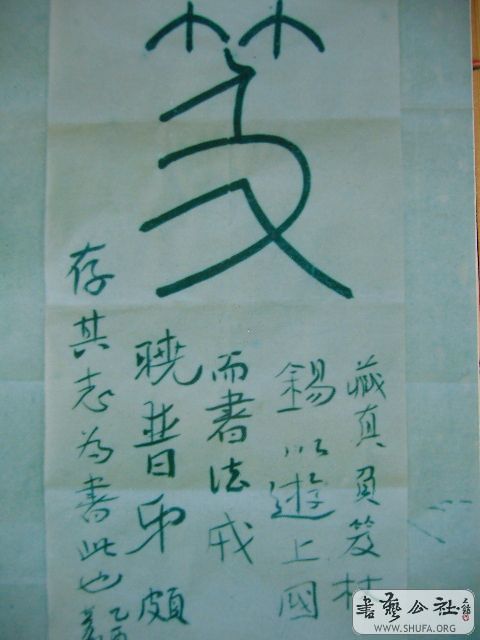 笈
藏真負笈杖
錫以遊上國
而書法成
曉普弟頗
存其志為書此也
書藝公社
WWW.SHUFA.ORG